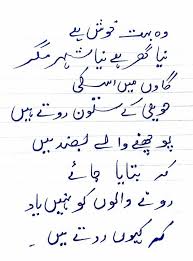 وہ بہت خوش ہے
نیا گھر ہے نیا شہر مگر
گاوں میں اسکی
حویلی کے ستون روتے ہیں
پوچھنے والے بضد ہیں
کہ بتایا جائے
رونے والوں کو نہیں یاد
کہ کیوں روتے ہیں۔